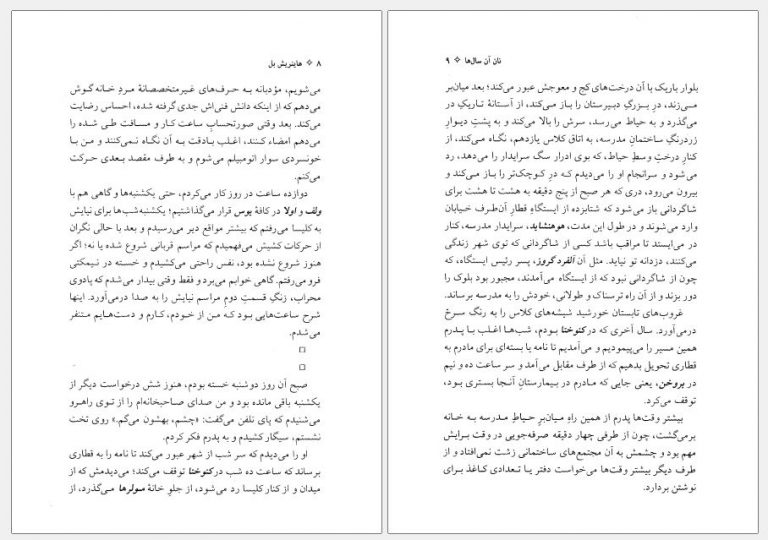 ۸ ✧ هاینریش بل
می‌شویم، مؤدبانه به حرف‌های غیرمتخصصانهٔ مرد خانه گوش
می‌دهم که از اینکه دانش فنی‌اش جدی گرفته شده، احساس رضایت
می‌کند. بعد وقتی صورتحساب ساعت کار و مسافت طی شده را
می‌دهم امضاء کنند، اغلب بادقت به آن نگاه نمی‌کنند و من با
خونسردی سوار اتومبیلم می‌شوم و به طرف مقصد بعدی حرکت
می‌کنم.
دوازده ساعت در روز کار می‌کردم، حتی یکشنبه‌ها و گاهی هم با
ولف و اولا در کافهٔ یوس قرار می‌گذاشتیم؛ یکشنبه‌شب‌ها برای نیایش
به کلیسا می‌رفتم که بیشتر مواقع دیر می‌رسیدم و بعد با حالی نگران
از حرکات کشیش می‌فهمیدم که مراسم قربانی شروع شده یا نه؛ اگر
هنوز شروع نشده بود، نفس راحتی می‌کشیدم و خسته در نیمکتی
فرو می‌رفتم. گاهی خوابم می‌برد و فقط وقتی بیدار می‌شدم که پادوی
محراب، زنگ قسمت دوم مراسم نیایش را به صدا درمی‌آورد. اینها
شرح ساعت‌هایی بود که من از خودم، کارم و دست‌هایم متنفر
می‌شدم.
صبح آن روز دوشنبه خسته بودم، هنوز شش درخواست دیگر از
یکشنبه باقی مانده بود و من صدای صاحبخانه‌ام را از توی راهرو
می‌شنیدم که پای تلفن می‌گفت: «چشم، بهشون می‌گم.» روی تخت
نشستم، سیگار کشیدم و به پدرم فکر کردم.
او را می‌دیدم که سر شب از شهر عبور می‌کند تا نامه را به قطاری
برساند که ساعت ده شب در کنوختا توقف می‌کند؛ می‌دیدمش که از
میدان و از کنار کلیسا رد می‌شود، از جلو خانهٔ مولرها می‌گذرد، از
نان آن سال‌ها ✧ ۹
بلوار باریک با آن درخت‌های کج و معوجش عبور می‌کند؛ بعد میان‌بر
می‌زند، در بزرگ دبیرستان را باز می‌کند، از آستانهٔ تاریک در
می‌گذرد و به حیاط می‌رسد، سرش را بالا می‌کند و به پشت دیوار
زردرنگ ساختمان مدرسه، به اتاق کلاس یازدهم، نگاه می‌کند، از
کنار درخت وسط حیاط، که بوی ادرار سگ سرایدار را می‌دهد، رد
می‌شود و سرانجام او را می‌دیدم که در کوچک‌تر را باز می‌کند و
بیرون می‌رود، دری که هر صبح از پنج دقیقه به هشت تا هشت برای
شاگردانی باز می‌شود که شتابزده از ایستگاه قطار آن‌طرف خیابان
وارد می‌شوند و در طول این مدت، هوهنشاید، سرایدار مدرسه، کنار
در می‌ایستد تا مراقب باشد کسی از شاگردانی که توی شهر زندگی
می‌کنند، دزدانه تو نیاید. مثل آن آلفرد گروز، پسر رئیس ایستگاه، که
چون از شاگردانی نبود که از ایستگاه می‌آمدند، مجبور بود بلوک را
دور بزند و از آن راه ترسناک و طولانی، خودش را به مدرسه برساند.
غروب‌های تابستان خورشید شیشه‌های کلاس را به رنگ سرخ
درمی‌آورد. سال آخری که در کنوختا بودم، شب‌ها اغلب با پدرم
همین مسیر را می‌پیمودیم و می‌آمدیم تا نامه یا بسته‌ای برای مادرم به
قطاری تحویل بدهیم که از طرف مقابل می‌آمد و سر ساعت ده و نیم
در بروخن، یعنی جایی که مادرم در بیمارستان آنجا بستری بود،
توقف می‌کرد.
بیشتر وقت‌ها پدرم از همین راه میان‌بر حیاط مدرسه به خانه
برمی‌گشت، چون از طرفی چهار دقیقه صرفه‌جویی در وقت برایش
مهم بود و چشمش به آن مجتمع‌های ساختمانی زشت نمی‌افتاد و از
طرف دیگر بیشتر وقت‌ها می‌خواست دفتر یا تعدادی کاغذ برای
نوشتن بردارد.